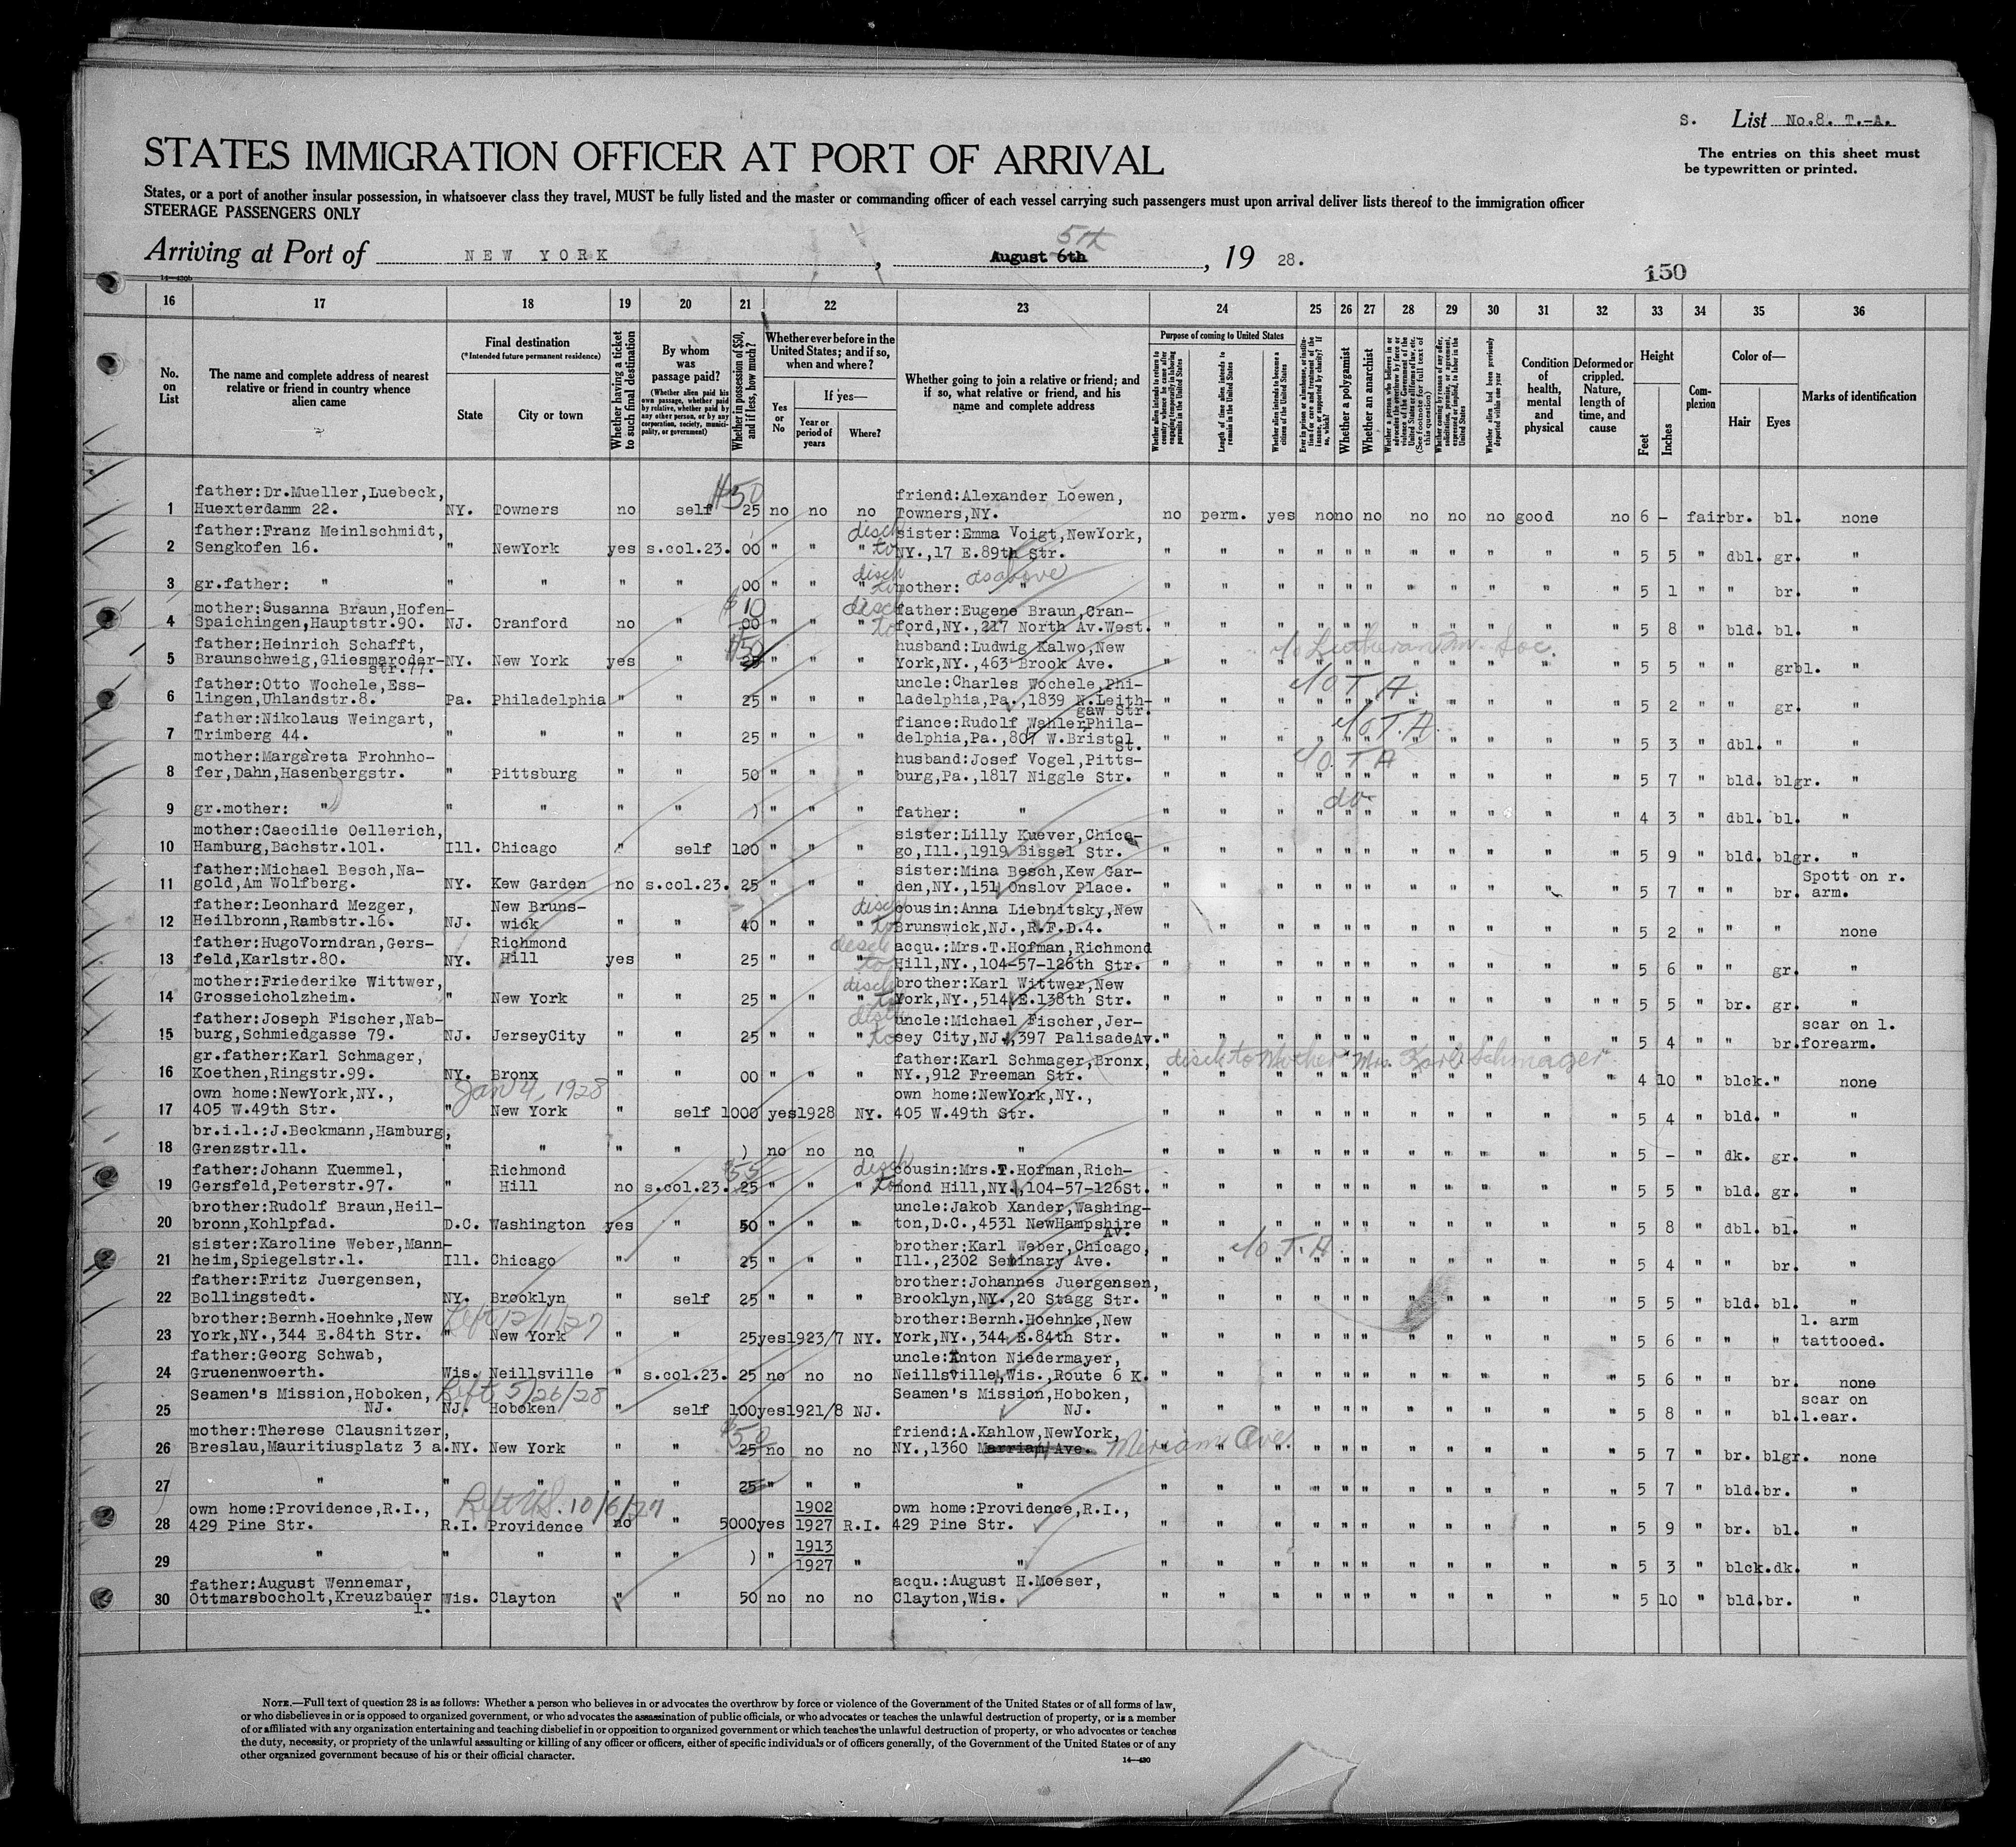 S. List No.8. T.-A.
The entries on this sheet must
be typewritten or printed.
STATES IMMIGRATION OFFICER AT PORT OF ARRIVAL
States, or a port of another insular possession, in whatsoever class they travel, MUST be fully listed and the master or commanding officer of each vessel carrying such passengers must upon arrival deliver lists thereof to the immigration officer
STEERAGE PASSENGERS ONLY
5th
Arriving at Port of NEW YORK, August 6th, 19 28.
14—430b
150
16 17 18 19 20 21 22 23 24 25 26 27 28 29 30 31 32 33 34 35 36
No. on List
The name and complete address of nearest relative or friend in country whence alien came
Final destination
(*Intended future permanent residence)
State
City or town
Whether having a ticket to such final destination
By whom was passage paid?
(Whether alien paid his own passage, whether paid by relative, whether paid by any other person, or by any corporation, society, municipality, or government)
Whether in possession of $50, and if less, how much?
Whether ever before in the United States; and if so, when and where?
Yes or No
If yes—
Year or period of years
Where?
Whether going to join a relative or friend; and if so, what relative or friend, and his name and complete address
Purpose of coming to United States
Whether alien intends to return to country whence he came after engaging temporarily in laboring pursuits in the United States
Length of time alien intends to remain in the United States
Whether alien intends to become a citizen of the United States
Ever in prison or almshouse, or institution for care and treatment of the insane, or supported by charity? If so, which?
Whether a polygamist
Whether an anarchist
Whether a person who believes in or advocates the overthrow by force or violence of the Government of the United States or all forms of law, etc. (See footnote for full text of this question)
Whether coming by reason of any offer, solicitation, promise, or agreement, expressed or implied, to labor in the United States
Whether alien had been previously deported within one year
Condition of health, mental and physical
Deformed or crippled. Nature, length of time, and cause
Height
Feet
Inches
Complexion
Color of—
Hair
Eyes
Marks of identification
father:Dr.Mueller,Luebeck, $50 friend:Alexander Loewen,
1 Huexterdamm 22. NY. Towners no self 25 no no no Towners,NY. no perm. yes no no no no no no good no 6 - fair br. bl. none
father:Franz Meinlschmidt, disch sister:Emma Voigt,NewYork,
2 Sengkofen 16. " NewYork yes s.col.23. 00 " " " to NY.,17 E.89th Str. " " " " " " " " " " " 5 5 " dbl. gr. "
disch as above
3 gr.father: " " " " " 00 " " " to mother: " " " " " " " " " " " " 5 1 " " br. "
mother:Susanna Braun,Hofen- $10 disch father:Eugene Braun,Cran-
4 Spaichingen,Hauptstr.90. NJ. Cranford no " 00 " " " to ford,NY.,217 North Av.West. " " " " " " " " " " " 5 8 " bld. bl. "
father:Heinrich Schafft, $50 husband:Ludwig Kalwo,New c/o Lutheran Im. Soc.
5 Braunschweig,Gliesmaroder- NY. New York yes " 25 " " " York,NY.,463 Brook Ave. " " " " " " " " " " " 5 5 " " grbl. "
str.77.
father:Otto Wochele,Ess- uncle:Charles Wochele,Phi- c/o T.A.
6 lingen,Uhlandstr.8. Pa. Philadelphia " " 25 " " " ladelphia,Pa.,1839 N.Leith- " " " " " " " " " " " 5 2 " " gr. "
gaw Str.
father:Nikolaus Weingart, fiance:Rudolf Wahler,Phila- c/o T.A.
7 Trimberg 44. " " " " 25 " " " delphia,Pa.,807 W.Bristol " " " " " " " " " " " 5 3 " dbl. " "
St.
mother:Margareta Frohnho- husband:Josef Vogel,Pitts- c/o T A
8 fer,Dahn,Hasenbergstr. " Pittsburg " " 50 " " " burg,Pa.,1817 Niggle Str. " " " " " " " " " " " 5 7 " bld. blgr. "
do
9 gr.mother: " " " " " ) " " " father: " " " " " " " " " " " " 4 3 " dbl. bl. "
mother:Caecilie Oellerich, sister:Lilly Kuever,Chica-
10 Hamburg,Bachstr.101. Ill. Chicago " self 100 " " " go,Ill.,1919 Bissel Str. " " " " " " " " " " " 5 9 " bld. blgr. "
father:Michael Besch,Na- sister:Mina Besch,Kew Gar- Spott on r.
11 gold,Am Wolfberg. NY. Kew Garden no s.col.23. 25 " " " den,NY.,151 Onslov Place. " " " " " " " " " " " 5 7 " " br. arm.
father:Leonhard Mezger, New Bruns- disch cousin:Anna Liebnitsky,New
12 Heilbronn,Rambstr.16. NJ. wick " " 40 " " " to Brunswick,NJ.,R.F.D.4. " " " " " " " " " " " 5 2 " " " none
father:HugoVorndran,Gers- Richmond disch acqu.:Mrs.T.Hofman,Richmond
13 feld,Karlstr.80. NY. Hill yes " 25 " " " to Hill,NY.,104-57-126th Str. " " " " " " " " " " " 5 6 " " gr. "
mother:Friederike Wittwer, disch brother:Karl Wittwer,New
14 Grosseicholzheim. " New York " " 25 " " " to York,NY.,514 E.138th Str. " " " " " " " " " " " " 5 5 " br. gr. "
father:Joseph Fischer,Nab- disch uncle:Michael Fischer,Jer- scar on l.
15 burg,Schmiedgasse 79. NJ. JerseyCity " " 25 " " " to sey City,NJ.,397 PalisadeAv. " " " " " " " " " " " 5 4 " " br. forearm.
gr.father:Karl Schmager, father:Karl Schmager,Bronx, disch to Mother Mrs. Karl Schmager
16 Koethen,Ringstr.99. NY. Bronx " " 00 " " " NY.,912 Freeman Str. " " " " " " " " " " " 4 10 " blck. " none
own home:NewYork,NY., Jan 4, 1928 own home:NewYork,NY.,
17 405 W.49th Str. " New York " self 1000 yes 1928 NY. 405 W.49th Str. " " " " " " " " " " " 5 4 " bld. " "
br.i.l.:J.Beckmann,Hamburg,
18 Grenzstr.11. " " " " ) no no no " " " " " " " " " " " " 5 - " dk. gr. "
father:Johann Kuemmel, Richmond $55 disch cousin:Mrs.T.Hofman,Rich-
19 Gersfeld,Peterstr.97. " Hill no s.col.23. 25 " " " to mond Hill,NY.,104-57-126St. " " " " " " " " " " " 5 5 " bld. gr. "
brother:Rudolf Braun,Heil- uncle:Jakob Xander,Washing-
20 bronn,Kohlpfad. D.C. Washington yes " 50 " " " ton,D.C.,4531 NewHampshire " " " " " " " " " " " 5 8 " dbl. bl. "
Av.
sister:Karoline Weber,Mann- brother:Karl Weber,Chicago, c/o T.A.
21 heim,Spiegelstr.1. Ill. Chicago " " 25 " " " Ill.,2302 Seminary Ave. " " " " " " " " " " " 5 4 " " br. "
father:Fritz Juergensen, brother:Johannes Juergensen,
22 Bollingstedt. NY. Brooklyn " self 25 " " " Brooklyn,NY.,20 Stagg Str. " " " " " " " " " " " 5 5 " bld. bl. "
brother:Bernh.Hoehnke,New Left 12/1/27 brother:Bernh.Hoehnke,New l. arm
23 York,NY.,344 E.84th Str. " New York " " 25 yes 1923/7 NY. York,NY.,344 E.84th Str. " " " " " " " " " " " 5 6 " " " tattooed.
father:Georg Schwab, uncle:Anton Niedermayer,
24 Gruenenwoerth. Wis. Neillsville " s.col.23. 25 no no no Neillsville,Wis.,Route 6 K. " " " " " " " " " " " 5 6 " " br. none
Seamen's Mission,Hoboken, Left 5/26/28 Seamen's Mission,Hoboken, scar on
25 NJ. NJ. Hoboken " self 100 yes 1921/8 NJ. NJ. " " " " " " " " " " " 5 8 " " bl. l.ear.
mother:Therese Clausnitzer, $50 friend:A.Kahlow,NewYork,
26 Breslau,Mauritiusplatz 3 a. NY. New York " " 25 no no no NY.,1360 Marriam Ave. Meriam Ave. " " " " " " " " " " 5 7 " br. blgr. none
27 " " " " " 25 " " " " " " " " " " " " " " " 5 7 " bld. br. "
own home:Providence,R.I., Left U.S. 10/6/27 1902 own home:Providence,R.I.,
28 429 Pine Str. R.I. Providence no " 5000 yes 1927 R.I. 429 Pine Str. " " " " " " " " " " " 5 9 " br. bl. "
1913
29 " " " " " ) " 1927 " " " " " " " " " " " " " 5 3 " blck. dk. "
father:August Wennemar, acqu.:August H.Moeser,
30 Ottmarsbocholt,Kreuzbauer Wis. Clayton " " 50 no no no Clayton,Wis. " " " " " " " " " " " 5 10 " bld. br. "
1.
NOTE.—Full text of question 28 is as follows: Whether a person who believes in or advocates the overthrow by force or violence of the Government of the United States or of all forms of law,
or who disbelieves in or is opposed to organized government, or who advocates the assassination of public officials, or who advocates or teaches the unlawful destruction of property, or is a member
of or affiliated with any organization entertaining and teaching disbelief in or opposition to organized government or which teaches the unlawful destruction of property, or who advocates or teaches
the duty, necessity, or propriety of the unlawful assaulting or killing of any officer or officers, either of specific individuals or of officers generally, of the Government of the United States or of any
other organized government because of his or their official character.
14—430